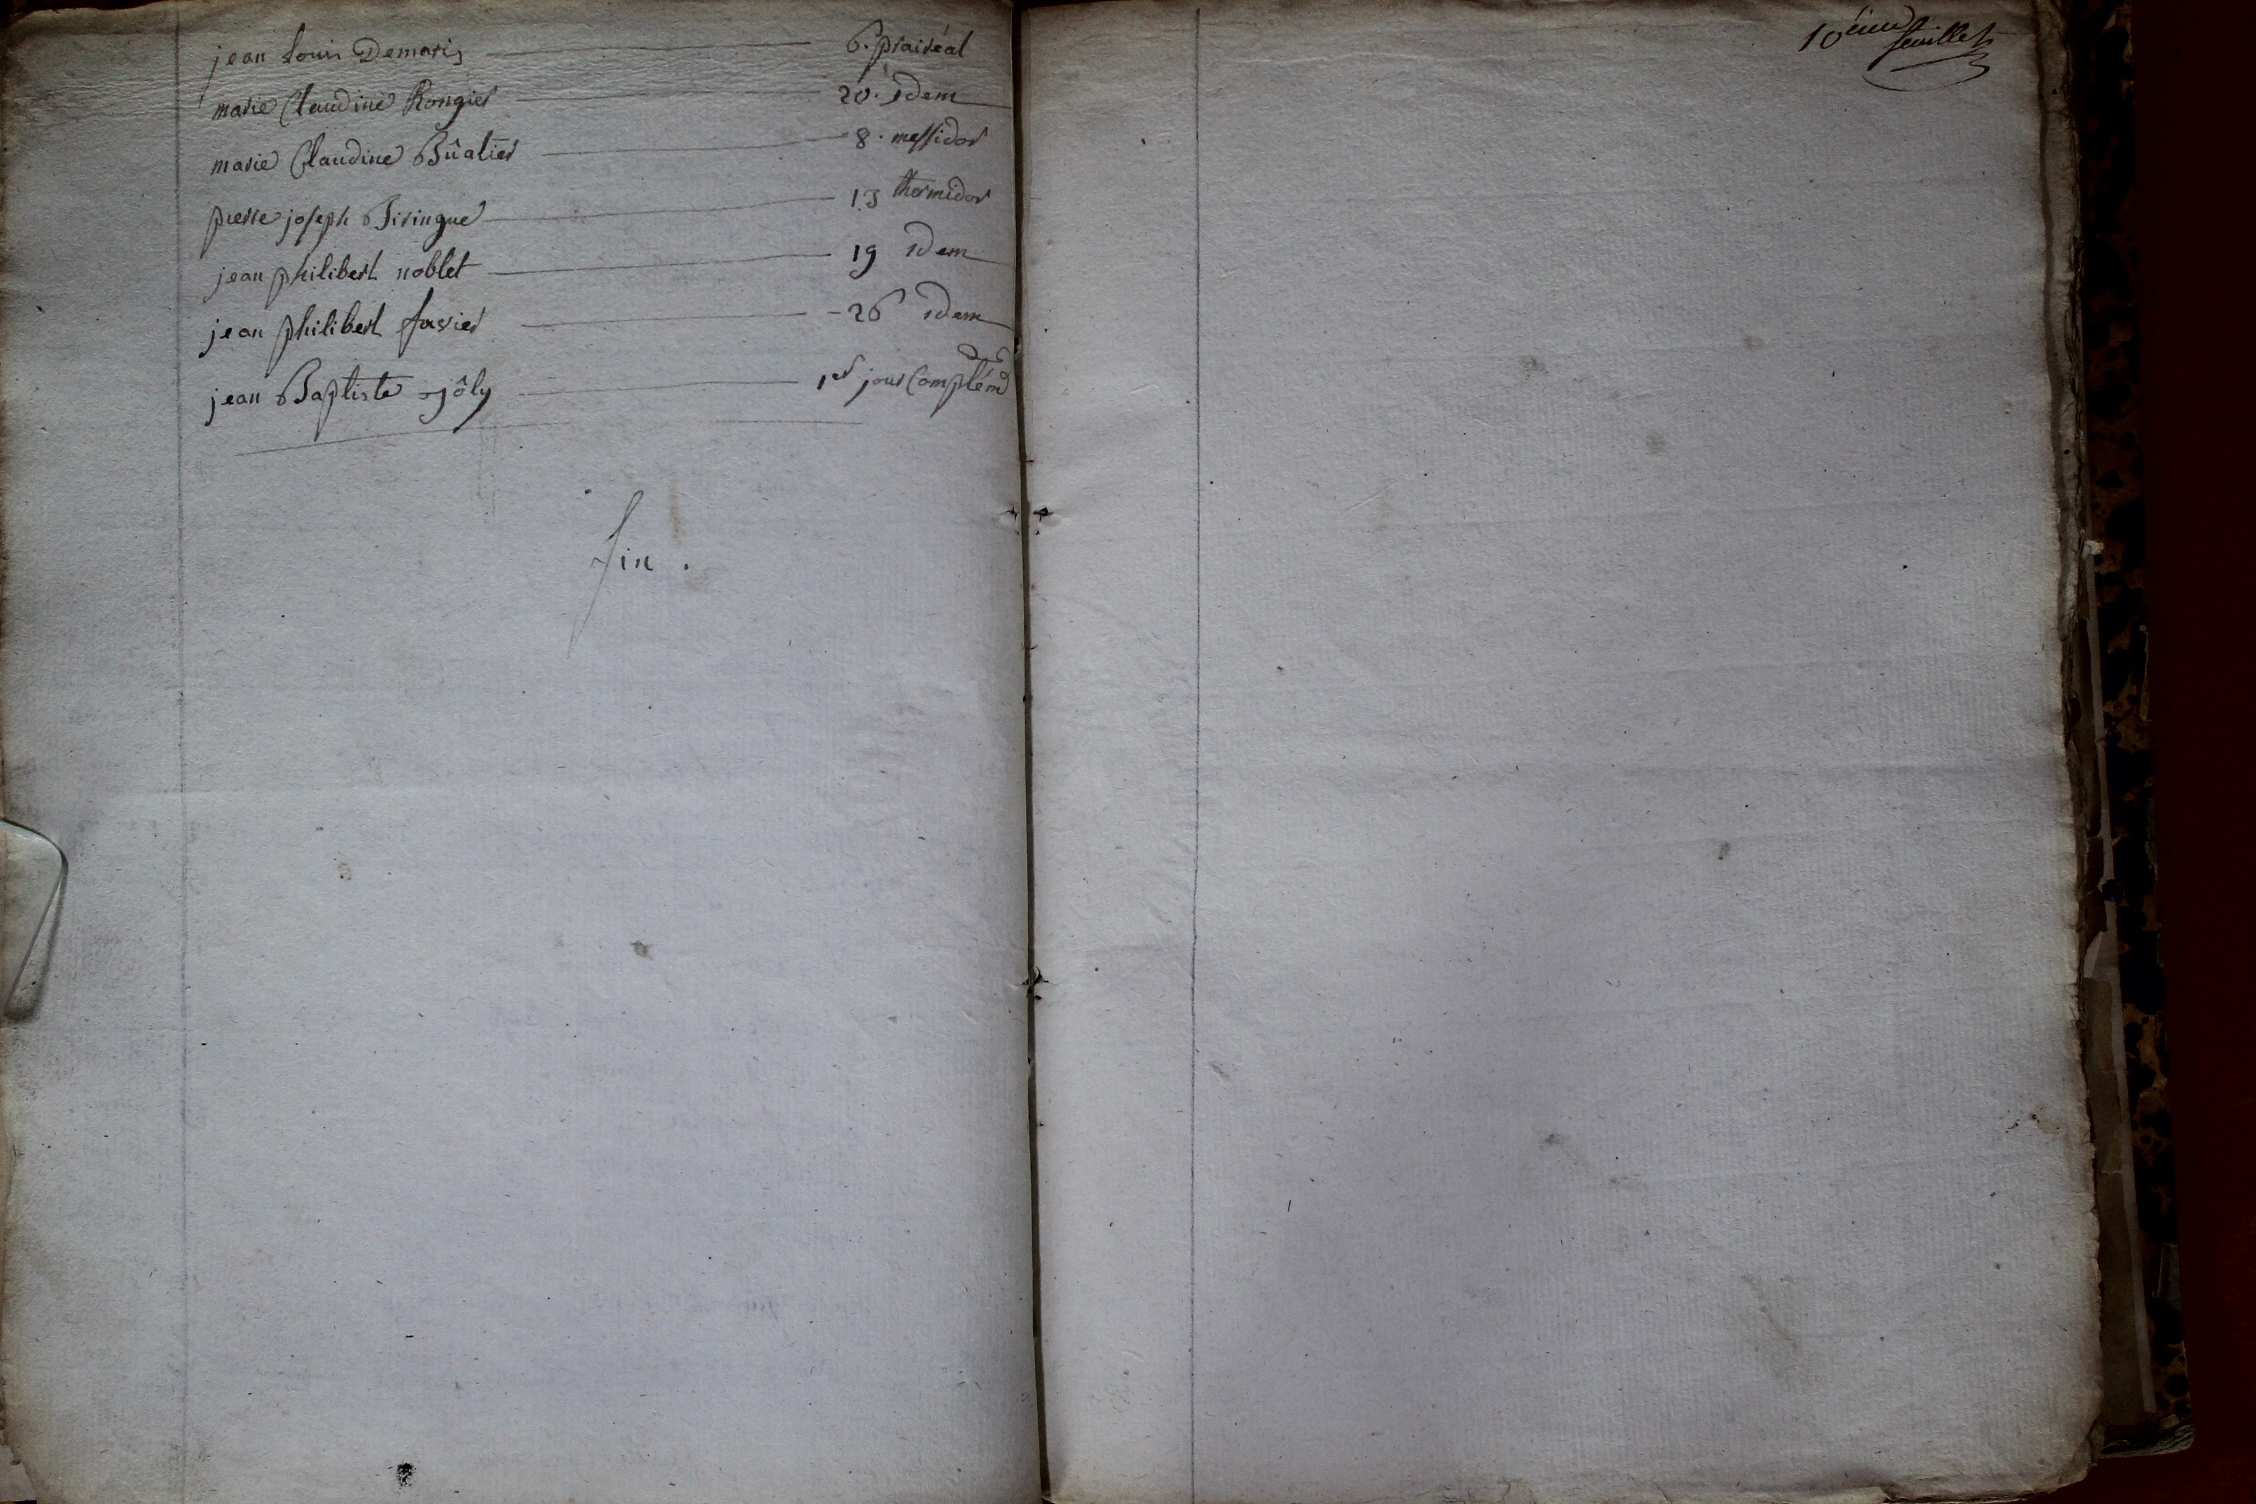 jean Louis Demaris 6. prairéal
marie Claudine Rongier 20. idem
marie Claudine Bûatier 8. messidor
pierre joseph 13 thermidor
jean philibert noblet 19 idem
jean philibert 26 idem
jean Baptiste jôly 1er jour Complém
fin.
10ième feuillet